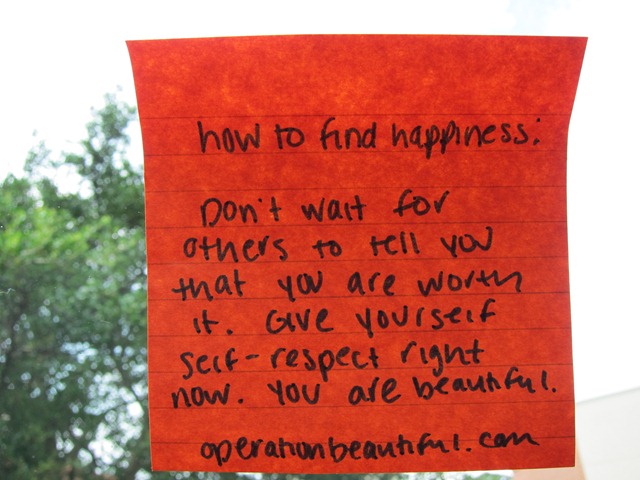 how to find happiness:
Don't wait for
others to tell you
that you are worth
it. Give yourself
self-respect right
now. You are beautiful.
operationbeautiful.com